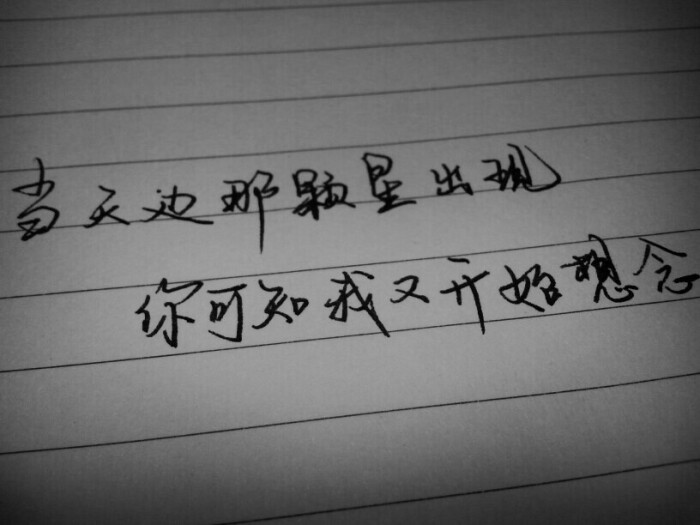 当天边那颗星出现
你可知我又开始想念